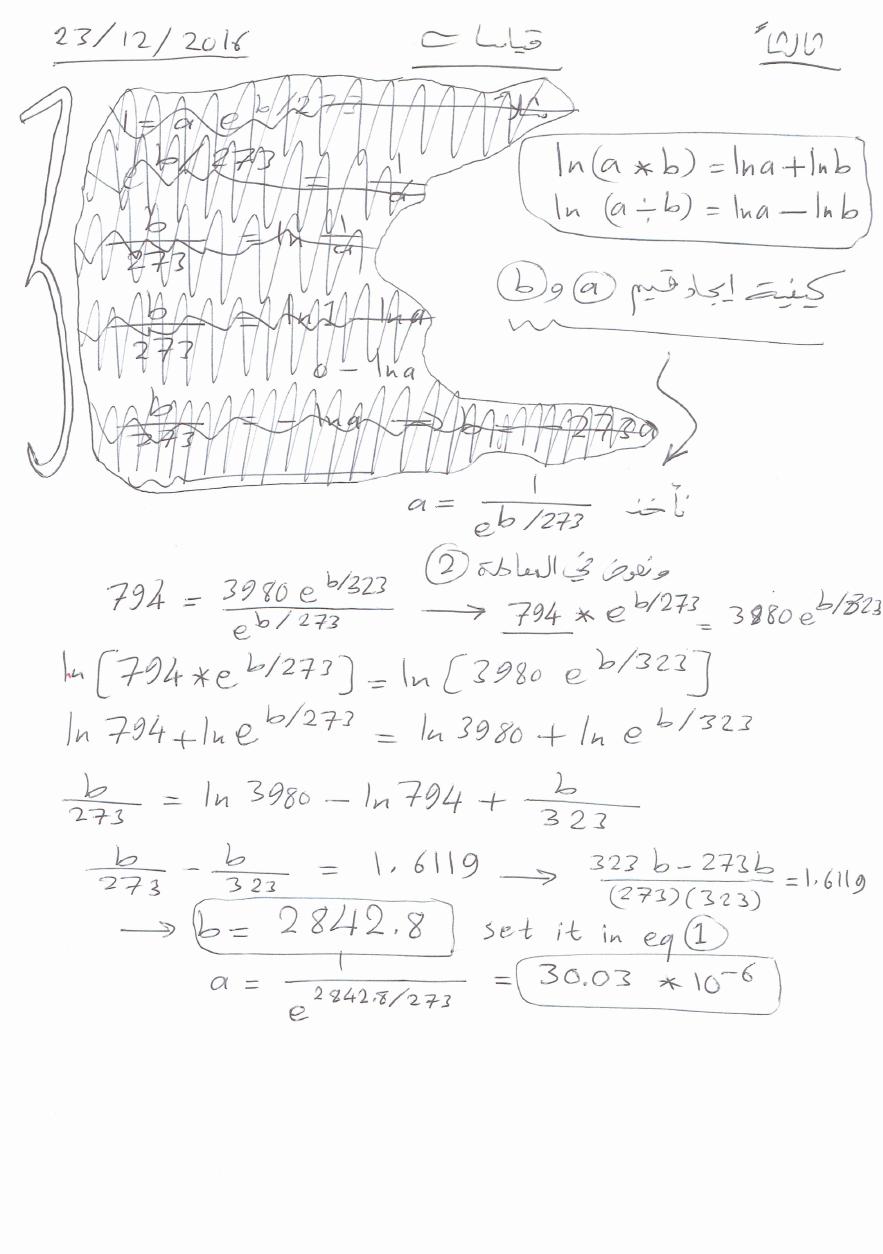 23/12/2016 قياسات ثالثاً
1 = a e^b/273
e^b/273 = 1/a
b/273 = ln 1/a
b/273 = ln 1 - ln a
0 - ln a
b/273 = - ln a => b = - 273a
ln(a * b) = lna + lnb
ln (a ÷ b) = lna - lnb
كيفية ايجاد قيم a و b
نأخذ a = 1/e^b/273
ونعوض في المعادلة 2
794 = 3980 e^b/323 / e^b/273 → 794 * e^b/273 = 3980 e^b/323
ln [794 * e^b/273] = ln [3980 e^b/323]
ln 794 + ln e^b/273 = ln 3980 + ln e^b/323
b/273 = ln 3980 - ln 794 + b/323
b/273 - b/323 = 1.6119 → 323 b - 273b / (273)(323) = 1.6119
→ b = 2842.8 set it in eq 1
a = 1/e^2842.8/273 = 30.03 * 10^-6